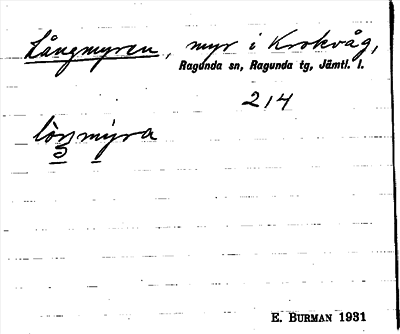 Långmyren, myr i Krokvåg,
Ragunda sn, Ragunda tg, Jämtl. l.
214
E. BURMAN 1931